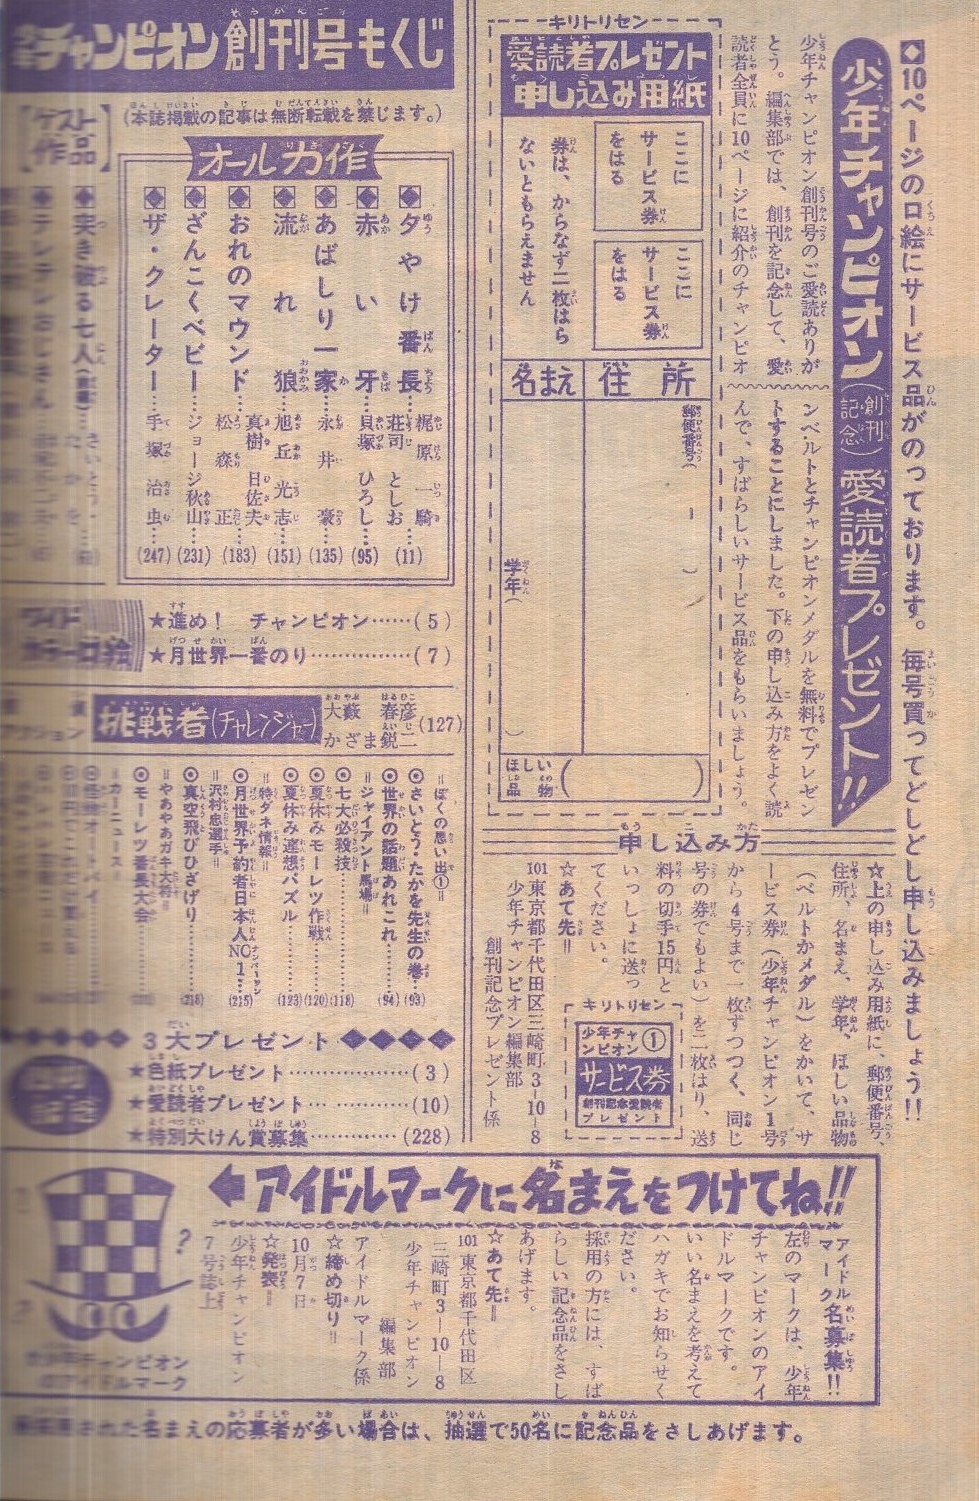 ◆10ページの口絵にサービス品がのっております。毎号買ってどしどし申し込みましょう!!
少年チャンピオン(創刊記念)愛読者プレゼント!!
少年チャンピオン創刊号のご愛読ありが
とう。編集部では、創刊を記念して、愛
読者全員に10ページに紹介のチャンピオ
ンベルトとチャンピオンメダルを無料でプレゼン
トすることにしました。下の申し込み方をよく読
んで、すばらしいサービス品をもらいましょう。
キリトリセン
愛読者プレゼント
申し込み用紙
ここに
サービス券
をはる
ここに
サービス券
をはる
券は、かならず二枚はら
ないともらえません
住所
名まえ
郵便番号(　―　)
学年(　)
ほしい品物(　)
申し込み方
☆上の申し込み用紙に、郵便番号、
住所、名まえ、学年、ほしい品物
(ベルトかメダル)をかいて、サ
ービス券(少年チャンピオン1号
から4号まで一枚ずつつく、同じ
号の券でもよい)を二枚はり、送
料の切手15円と
いっしょに送っ
てください。
☆あて先=
101東京都千代田区三崎町3-10-8
少年チャンピオン編集部
創刊記念プレゼント係
キリトリセン
少年チャンピオン①
サービス券
創刊記念愛読者
プレゼント
チャンピオン創刊号もくじ
(本誌掲載の記事は無断転載を禁じます。)
オール力作
◆夕やけ番長 梶原一騎 荘司としお…(11)
◆赤い牙 貝塚ひろし…(95)
◆あばしり一家 永井豪…(135)
◆流れ狼 旭丘光志…(151)
◆おれのマウンド… 真樹日佐夫 松森正(183)
◆ざんこくベビー…ジョージ秋山(231)
◆ザ・クレーター…手塚治虫…(247)
ゲスト
作品
◆突き破る七人
★進め! チャンピオン……(5)
★月世界一番のり……………(7)
挑戦者(チャレンジャー) 大藪春彦 かざま鋭二(127)
=ぼくの思い出①=
◎さいとう・たかを先生の巻…(93)
◎世界の話題あれこれ……(94)
=ジャイアント馬場=
◎七大必殺技……(118)
◎夏休みモーレツ作戦……(120)
◎夏休み連想パズル……(123)
=特ダネ情報=
◎月世界予約者日本人NO1…(215)
=沢村忠選手=
◎真空飛びひざげり……(218)
=やあやあガキ大将=
◎モーレツ番長大会
=カーニュース=
3大プレゼント◆◆◆◆
★色紙プレゼント……………(3)
★愛読者プレゼント…………(10)
★特別大けん賞募集…………(228)
←アイドルマークに名まえをつけてね!!
アイドル
マーク名募集!!
左のマークは、少年
チャンピオンのアイ
ドルマークです。
いい名まえを考えて
ハガキでお知らせく
ださい。
採用の方には、すば
らしい記念品をさし
あげます。
☆あて先=
101東京都千代田区
三崎町3-10-8
少年チャンピオン
編集部
アイドルマーク係
☆締め切り=
10月7日
☆発表=
少年チャンピオン
7号誌上
チャンピオン
アイドルマーク
された名まえの応募者が多い場合は、抽選で50名に記念品をさしあげます。